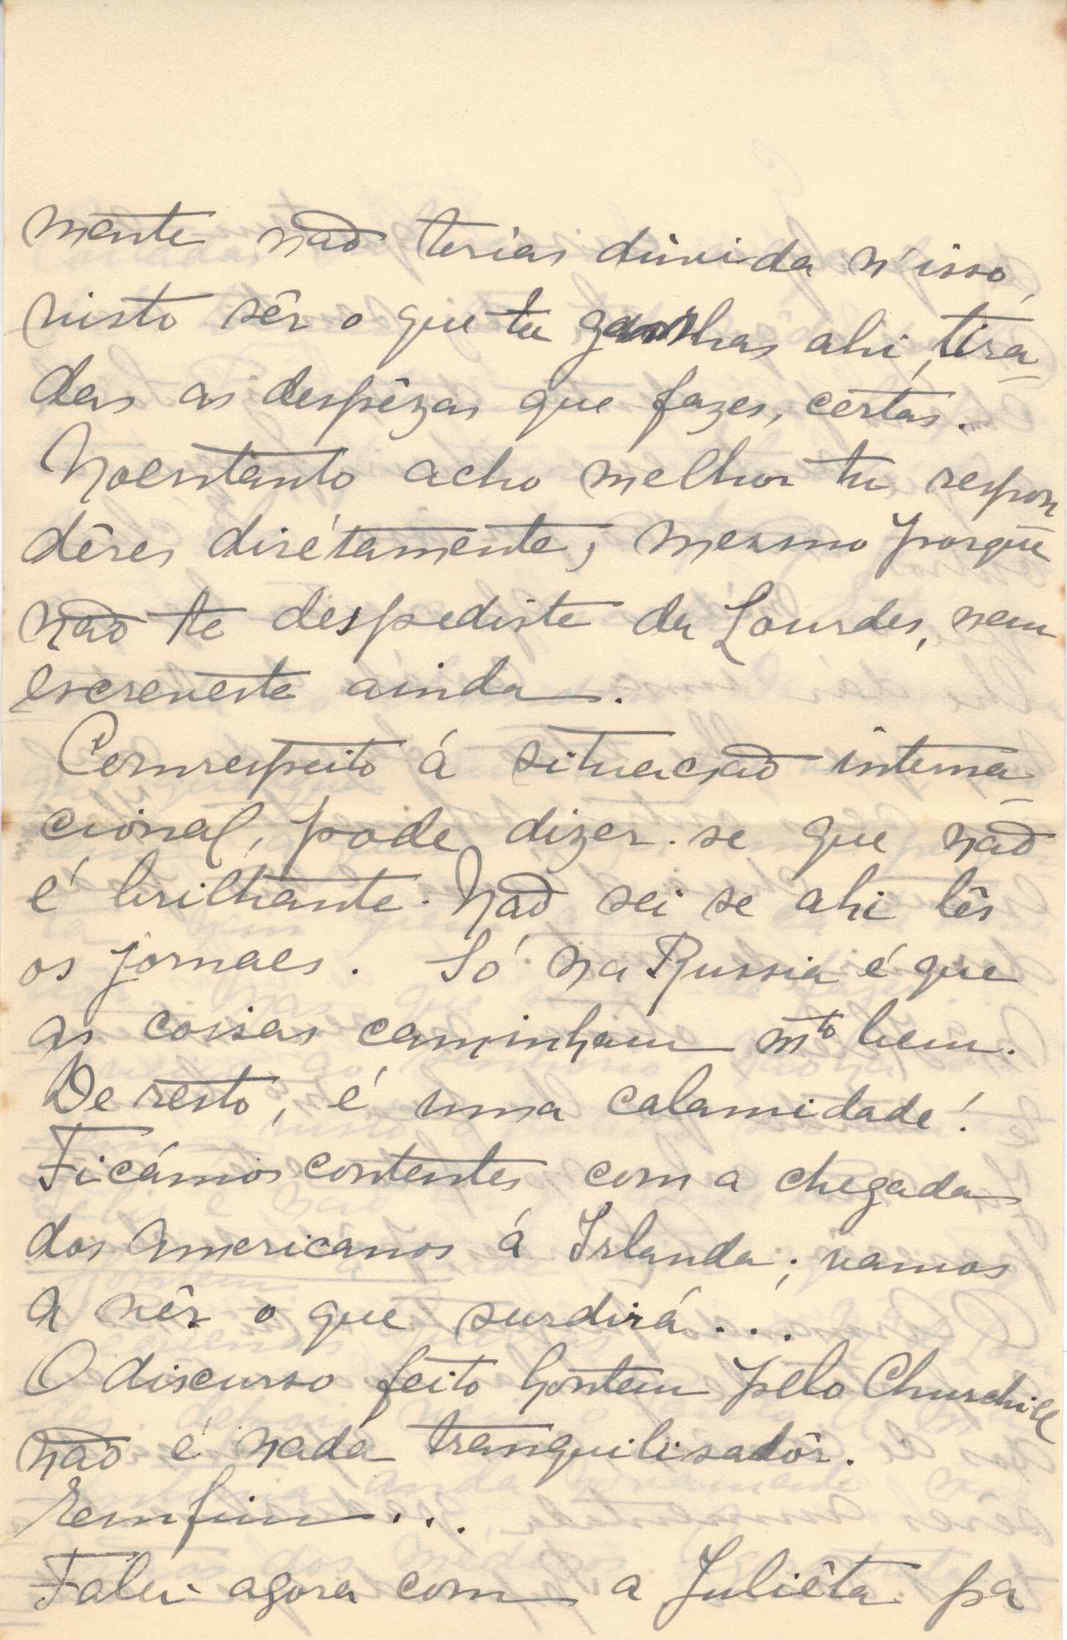 mente não terias dúvida n'isso,
visto sêr o que tu ganhas ahi, tira
das as despêzas que fazes, certas.
Noentanto acho melhor tu respon
dêres dirétamente, mesmo porque
não te despediste da Lourdes, nem
escreveste ainda.
Comrespeito á situação interna-
cional, pode dizer-se que não
é brilhante. Não sei se ahi lês
os jornaes. Só na Russia é que
as coisas caminham mto bem.
De resto, é uma calamidade!
Ficámos contentes com a chegada
dos Americanos á Irlanda; vamos
a vêr o que surdirá...
O discurso feito hontem pelo Churchill
não é nada tranquilisadôr.
Emfim...
Falei agora com a Juliêta pa